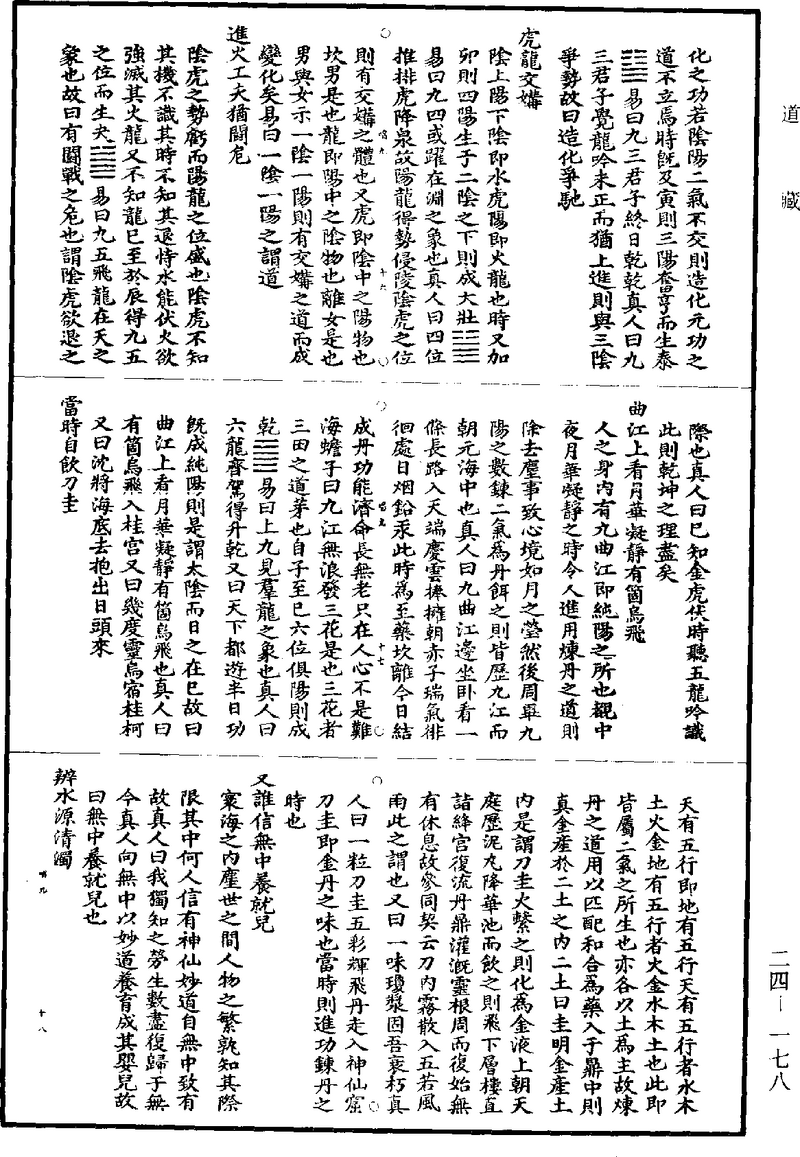 道藏
化之功若陰陽二氣不交則造化元功之
道不立焉時既及寅則三陽奮亨而生泰
䷊易曰九三君子終日乾乾真人曰九
三君子覺龍吟未正而猶上進則與三陰
爭勢故曰造化爭馳
虎龍交媾
陰上陽下陰即水虎陽即火龍也時又加
卯則四陽生于二陰之下則成大壯䷡
易曰九四或躍在淵之象也真人曰四位
推排虎降泉故陽龍得勢侵陵陰虎之位
則有交媾之體也又虎即陰中之陽物也
坎男是也龍即陽中之陰物也離女是也
男與女示一陰一陽則有交媾之道而成
變化矣易曰一陰一陽之謂道
進火工夫猶鬪危
陰虎之勢虧而陽龍之位盛也陰虎不知
其機不識其時不知其退恃水能伏火欲
強滅其火龍又不知龍巳至於辰得九五
之位而生夬䷪易曰九五飛龍在天之
象也故曰有鬪戰之危也謂陰虎欲退之
際也真人曰巳知金虎伏時聽五龍吟識
此則乾坤之理盡矣
曲江上看月華凝靜有箇烏飛
人之身內有九曲江即純陽之所也覩中
夜月華凝靜之時令人進用煉丹之道則
除去塵事致心境如月之瑩然後周畢九
陽之數鍊二氣為丹餌之則皆歷九江而
朝元海中也真人曰九曲江邊坐卧看一
條長路入天端慶雲捧擁朝赤子瑞氣徘
徊處日烟鉛汞此時為至藥坎離今日結
成丹功能濟命長無老只在人心不是難
海蟾子曰九江無浪發三花是也三花者
三田之道芽也自子至巳六位俱陽則成
乾䷀易曰上九見羣龍之象也真人曰
六龍齊駕得升乾又曰天下都遊半日功
既成純陽則是謂太陰而日之在巳故曰
曲江上看月華凝靜有箇烏飛也真人曰
有箇烏飛入桂宮又曰幾度靈烏宿桂柯
又曰沈將海底去抱出日頭來
當時自飲刀圭
天有五行即地有五行天有五行者水木
土火金地有五行者火金水木土也此即
皆屬二氣之所生也亦各以土為主故煉
丹之道用以匹配和合為藥入于鼎中則
真金產於二土之內二土曰圭明金產土
內是謂刀圭火繫之則化為金液上朝天
庭歷泥丸降華池而飲之則飛下層樓直
詣絳宮復流丹鼎灌溉靈根周而復始無
有休息故參同契云刀內霧散入五若風
雨此之謂也又曰一味瓊漿因吾衰朽真
人曰一粒刀圭五彩輝飛丹走入神仙窟
刀圭即金丹之味也當時則進功鍊丹之
時也
又誰信無中養就兒
寰海之內塵世之間人物之繁孰知其際
限其中何人信有神仙妙道自無中致有
故真人曰我獨知之勞生數盡復歸于無
今真人向無中以妙道養育成其嬰兒故
曰無中養就兒也
辨水源清濁
唱九
十六
唱九
十七
唱九
十八
二四—一七八